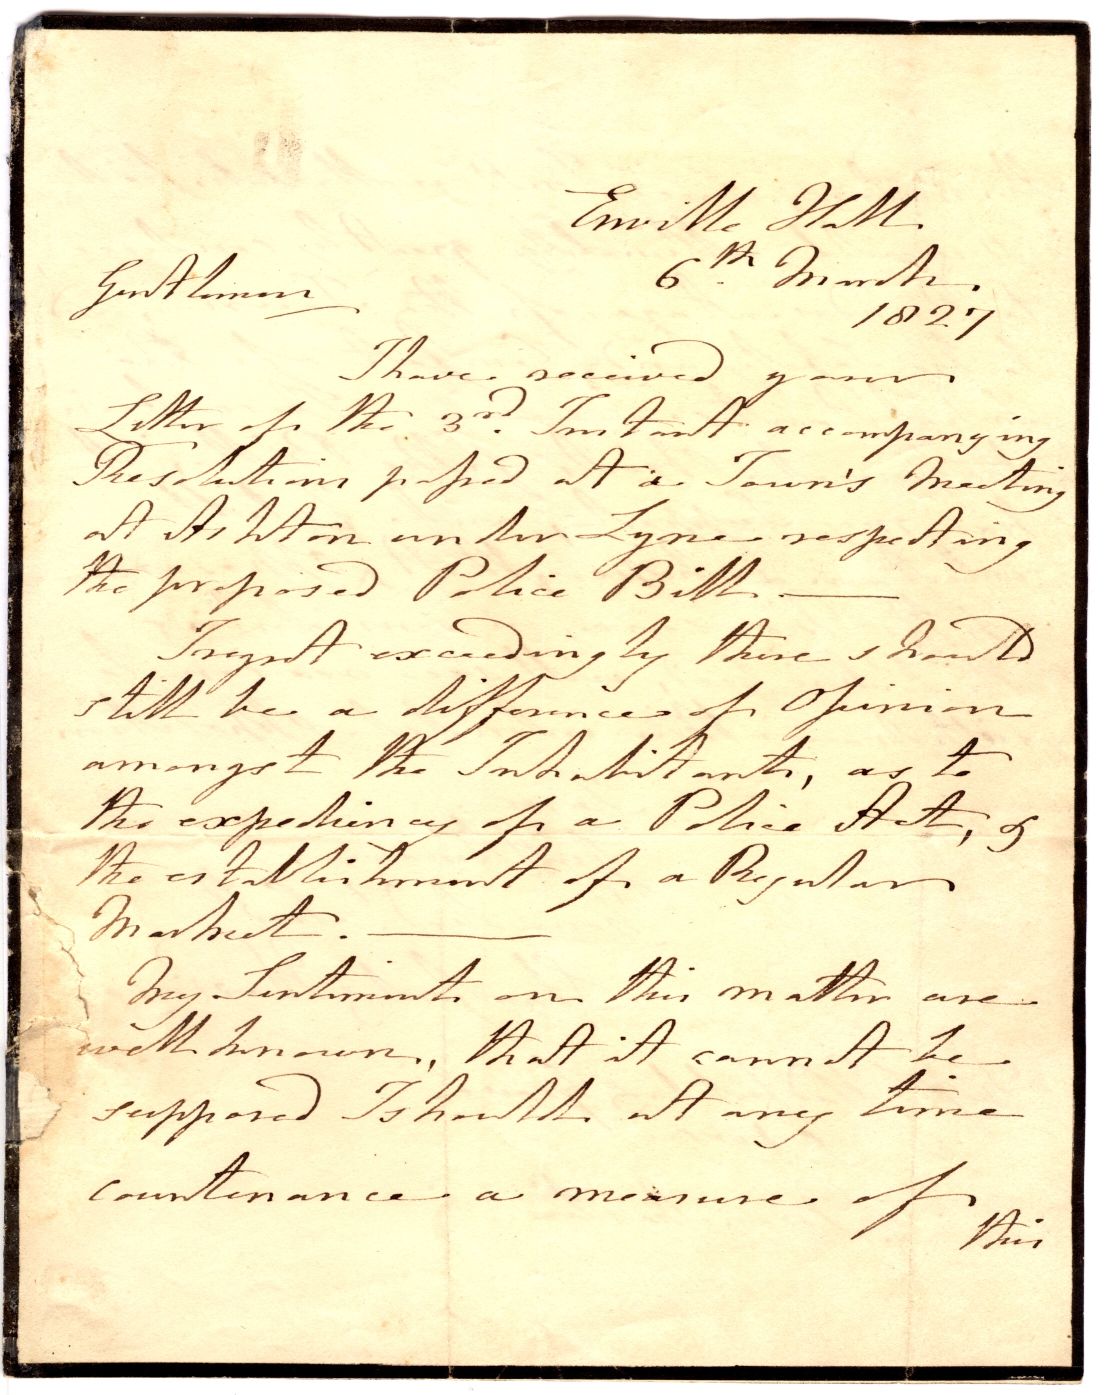 Enville Hall
6th. March.
1827
Gentlemen
I have received your
Letter of the 3rd. Instant accompanying
Resolutions passed at a Town's Meeting
at Ashton under Lyne respecting
the proposed Police Bill. —
I regret exceedingly there should
still be a difference of Opinion
amongst the Inhabitants, as to
the expediency of a Police Act, &
the establishment of a Regular
Market. —
My Sentiments on this matter are
well known, that it cannot be
supposed I should at any time
countenance a measure of
this